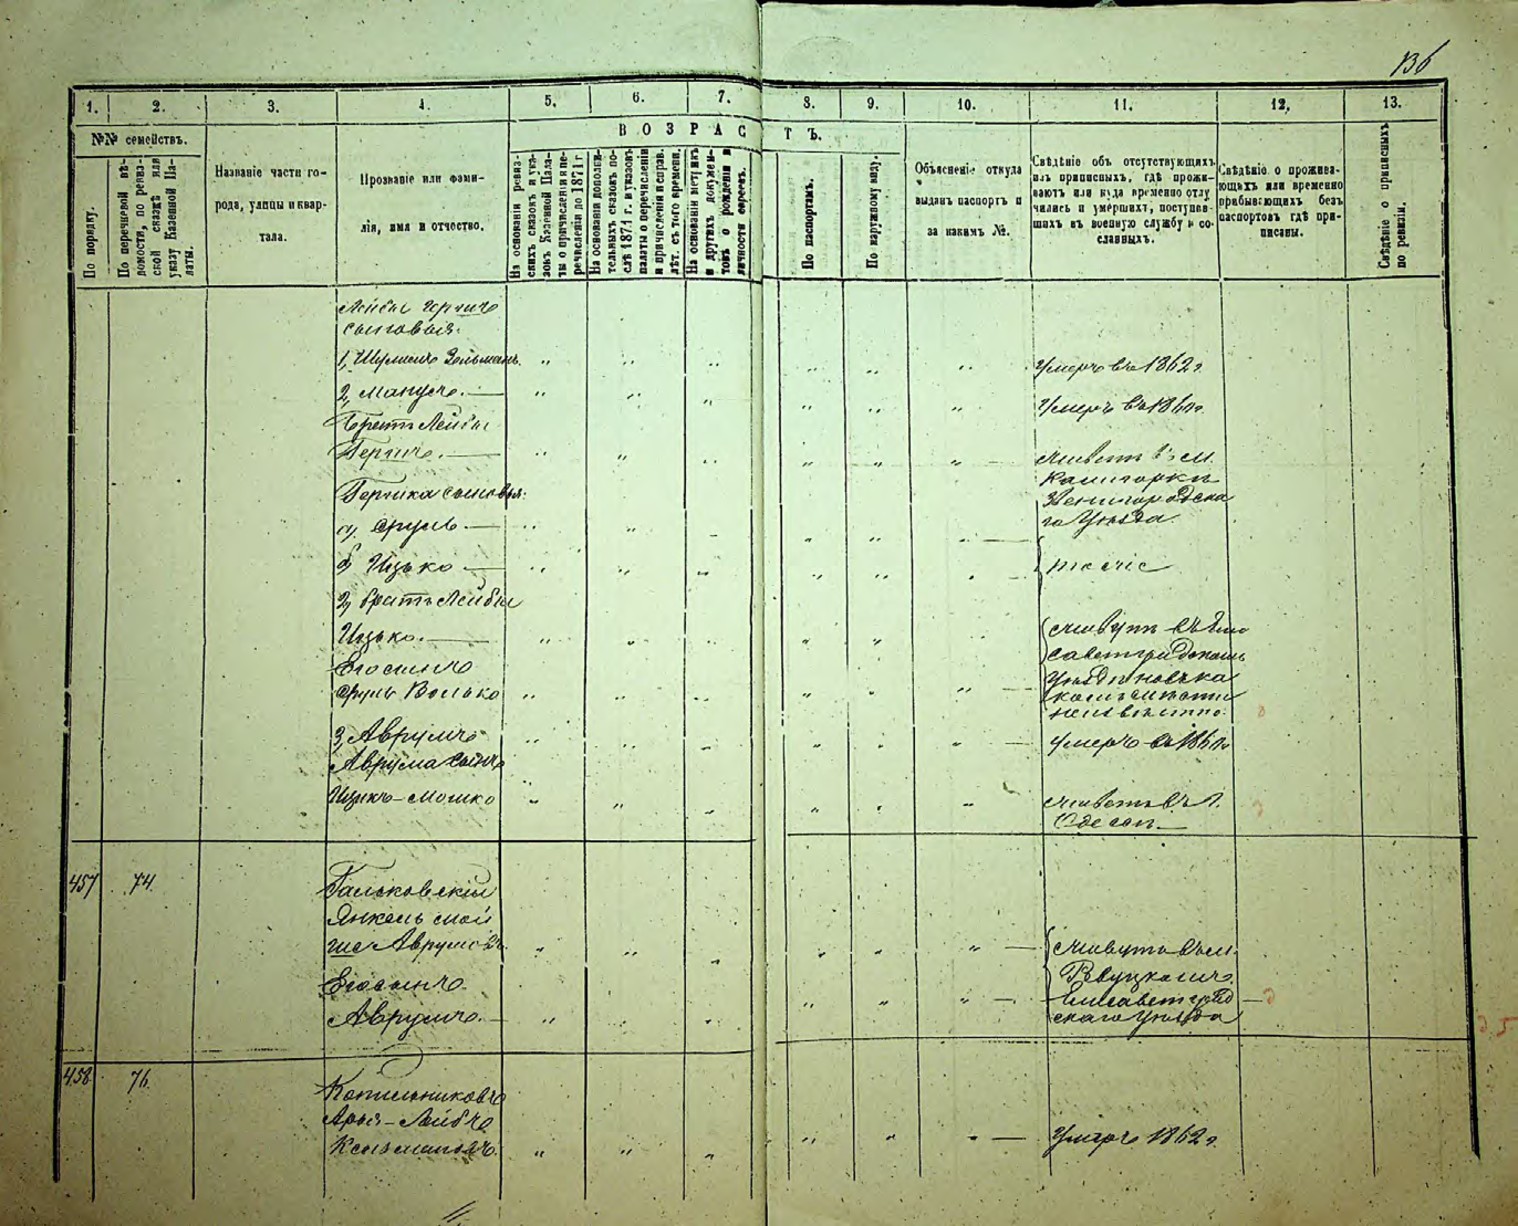 136
1. 2. 3. 4. 5. 6. 7. 8. 9. 10. 11. 12. 13.
№№ семействъ.
ВОЗРАСТЪ.
По порядку.
По перечневой вѣ-
домости, по ревиз-
ской сказкѣ или
указу Казенной Па-
латы.
Названіе части го-
рода, улицы и квар-
тала.
Прозваніе или фами-
лія, имя и отчество.
На основаніи ревиз-
скихъ сказокъ и ука-
зовъ Казенной Пала-
ты о причисленіи и пе-
речисленіи до 1871 г.
На основаніи дополни-
тельныхъ сказокъ по-
слѣ 1871 г. и указовъ
палаты о перечисленіи
и причисленіи и справ.
лѣт. съ того времени.
На основаніи метрикъ
и другихъ докумен-
товъ о рожденіи и
личности евреевъ.
По паспортамъ.
По наружному виду.
Объясненіе откуда
выданъ паспортъ и
за какимъ №.
Свѣдѣніе объ отсутствующихъ
изъ приписныхъ, гдѣ прожи-
ваютъ или куда временно отлу
чились и умершихъ, поступив-
шихъ въ военную службу и со-
сланныхъ.
Свѣдѣніе о прожива-
ющихъ или временно
прибывающихъ безъ
паспортовъ гдѣ при-
писаны.
Свѣдѣніе о приписныхъ
по ревизіи.
Лейбы
сыновья:
1, Шулимъ Зельманъ. Умеръ въ 1862 г.
2, Манусъ. Умеръ въ
Братъ Лейбы
Гершъ. живетъ въ м.
Калигоркѣ
Гершка сыновья: Звенигородска
го Уѣзда.
а, Сруль
б, Ицько тоже
2, братъ Лейбы
Ицько. живутъ въ Ели
Его сынъ саветградскомъ
Сруль Волько Уѣздѣ но въ ка
комъ мѣстѣ
неизвѣстно.
3, Аврумъ умеръ въ
Аврума сынъ
Ицикъ-Мошко живетъ въ г.
Одессѣ.
457 74 Гальковскій
Янкель Мой
ше Аврумовъ. живутъ въ м.
Его сынъ Ревуцкомъ
Аврумъ. Елисаветград
скаго Уѣзда
458 76 Котельниковъ
Арья-Лейбъ
Умеръ 1862 г.